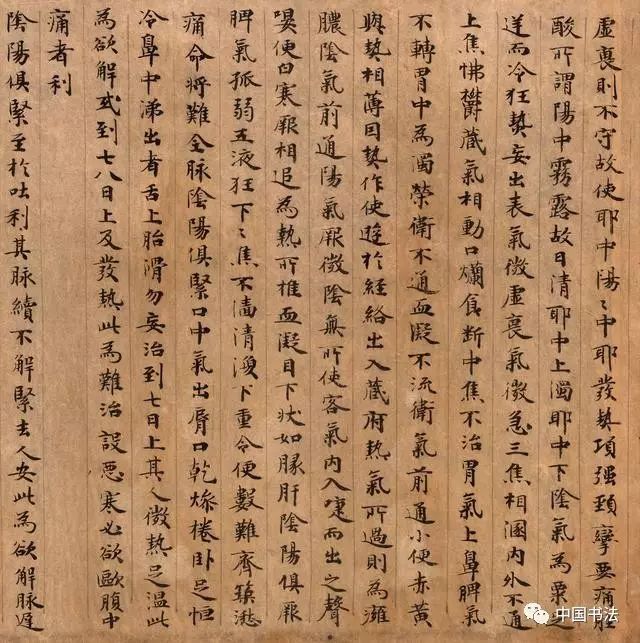 虛裏則不守故使耶中陽〻中耶發熱項强頚攣要痛脛
酸所謂陽中霧露故曰清耶中上濁耶中下陰氣為栗之
逆而冷狂熱妄出表氣微虛裏氣微急三焦相溷内外不通
上焦怫欝蔵氣相動口爛食断中焦不治胃氣上鼻脾氣
不轉胃中為濁榮衛不通血凝不流衛氣前通小便赤黄
與熱相薄因熱作使遊於経給出入蔵府熱氣所過則為癕
膿陰氣前通陽氣厥微陰無所使客氣内入嚏而出之聲
嗢便臼寒厥相追為熱所推血凝目下状如豚肝陰陽俱厥
脾氣孤弱五液狂下〻焦不濇清溲下重令便數難齊築湫
痛命将難全脉陰陽俱緊口中氣出脣口乾燥棬卧足恒
冷鼻中涕出者舌上胎滑勿妄治到七日上其人微熱足温此
為欲解或到七八日上反發熱此為難治設惡寒必欲歐腹中
痛者利
陰陽俱緊至於吐利其脉續不解緊去人安此為欲解脉遅
中国书法